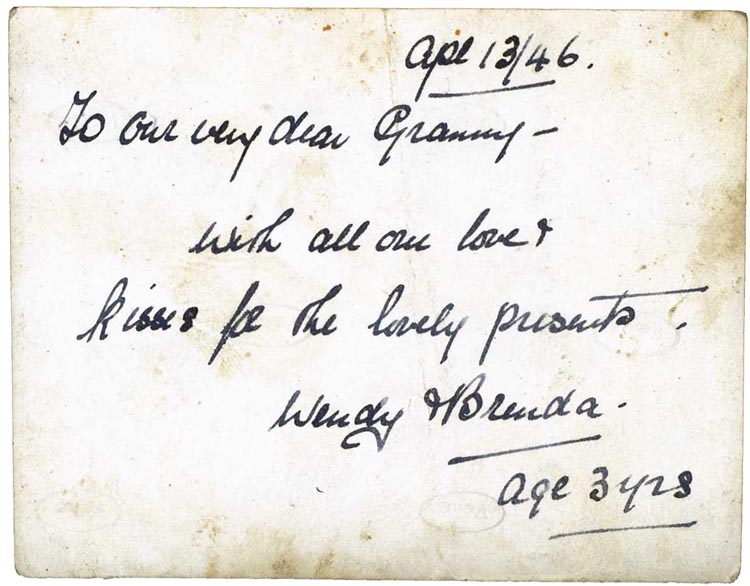 Apl 13/46.
To our very dear Granny –
with all our love &
kisses for the lovely presents.
Wendy & Brenda.
age 3 yrs